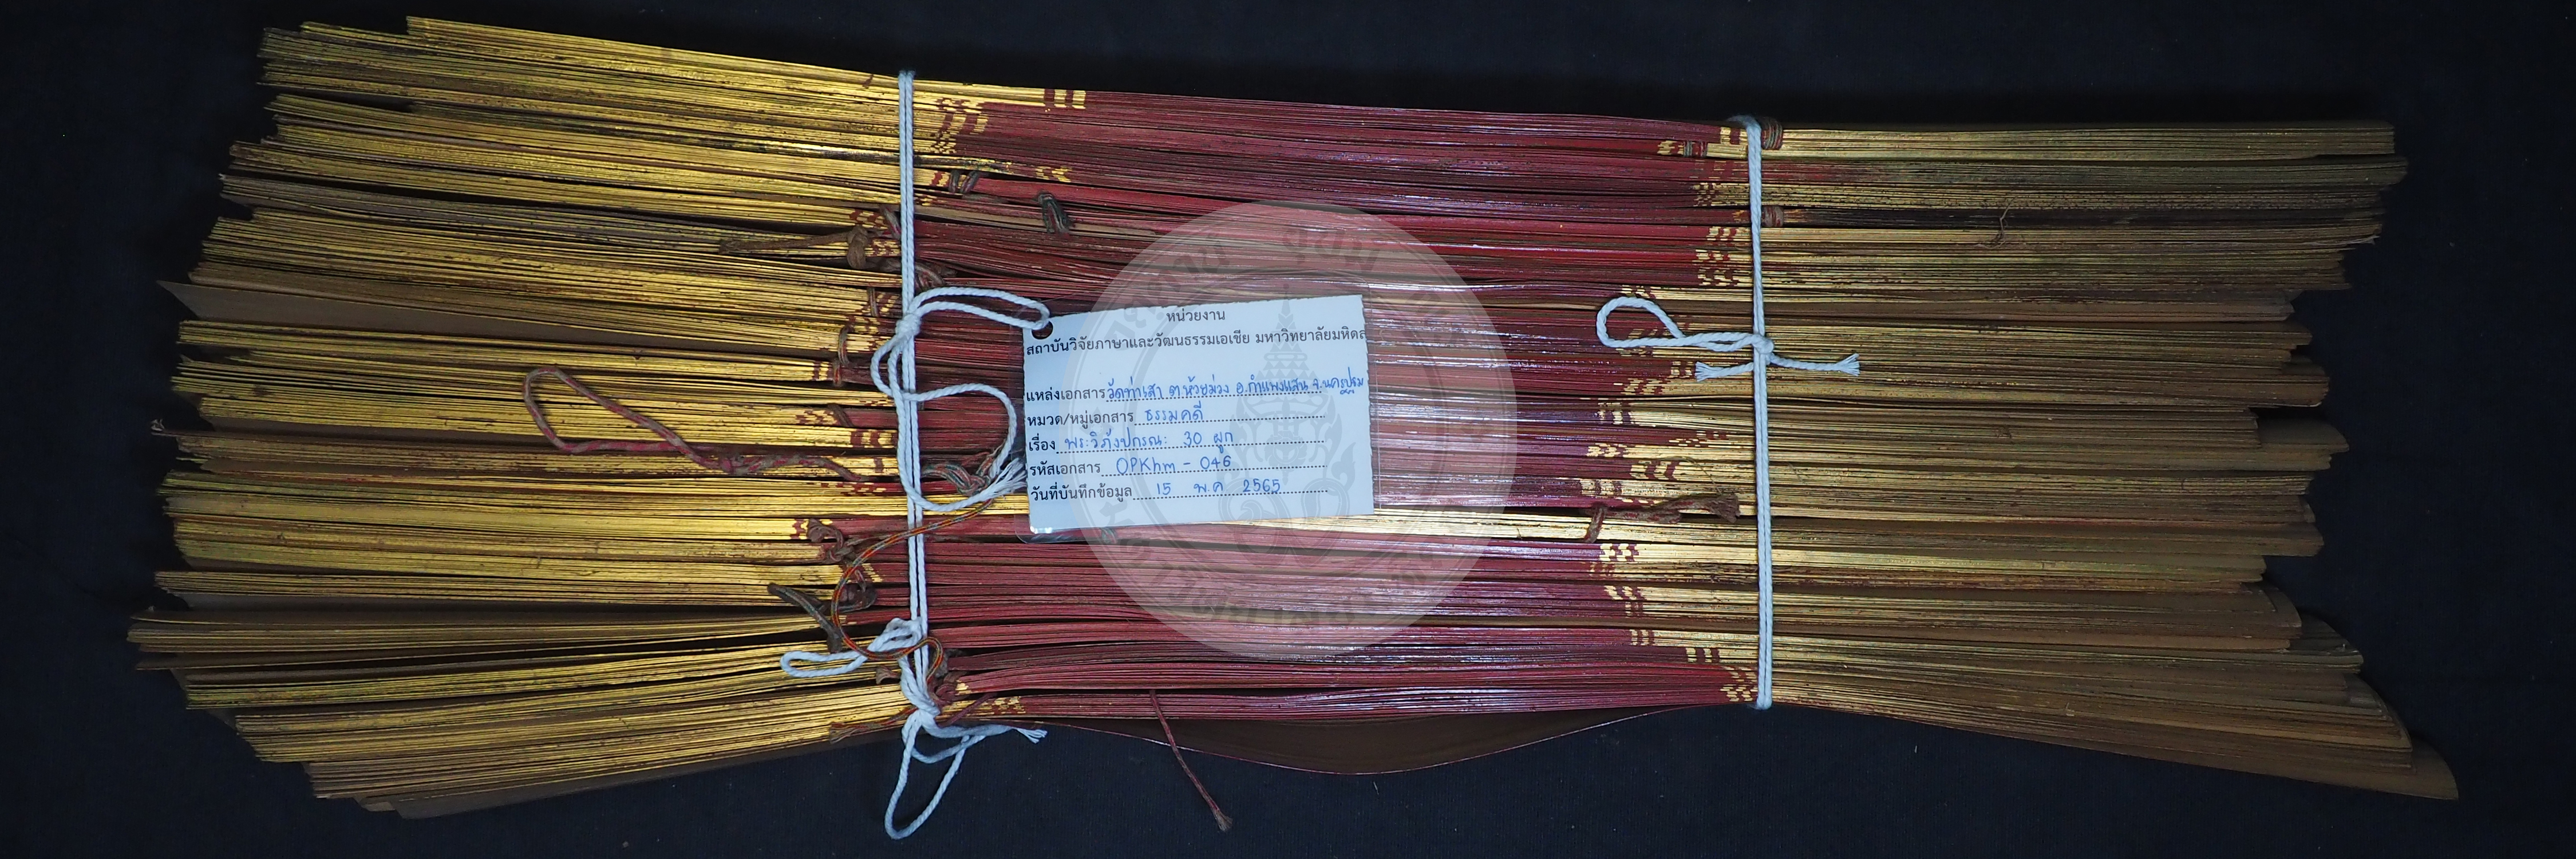 หน่วยงาน
สถาบันวิจัยภาษาและวัฒนธรรมเอเชีย มหาวิทยาลัยมหิดล
แหล่งเอกสาร วัดท่าเสา ต.ห้วยม่วง อ.กำแพงแสน จ.นครปฐม
หมวด/หมู่เอกสาร ธรรมคดี
เรื่อง พระวิภังปกรณะ 30 ผูก
รหัสเอกสาร OPKhm - 046
วันที่บันทึกข้อมูล 15 พ.ค 2565